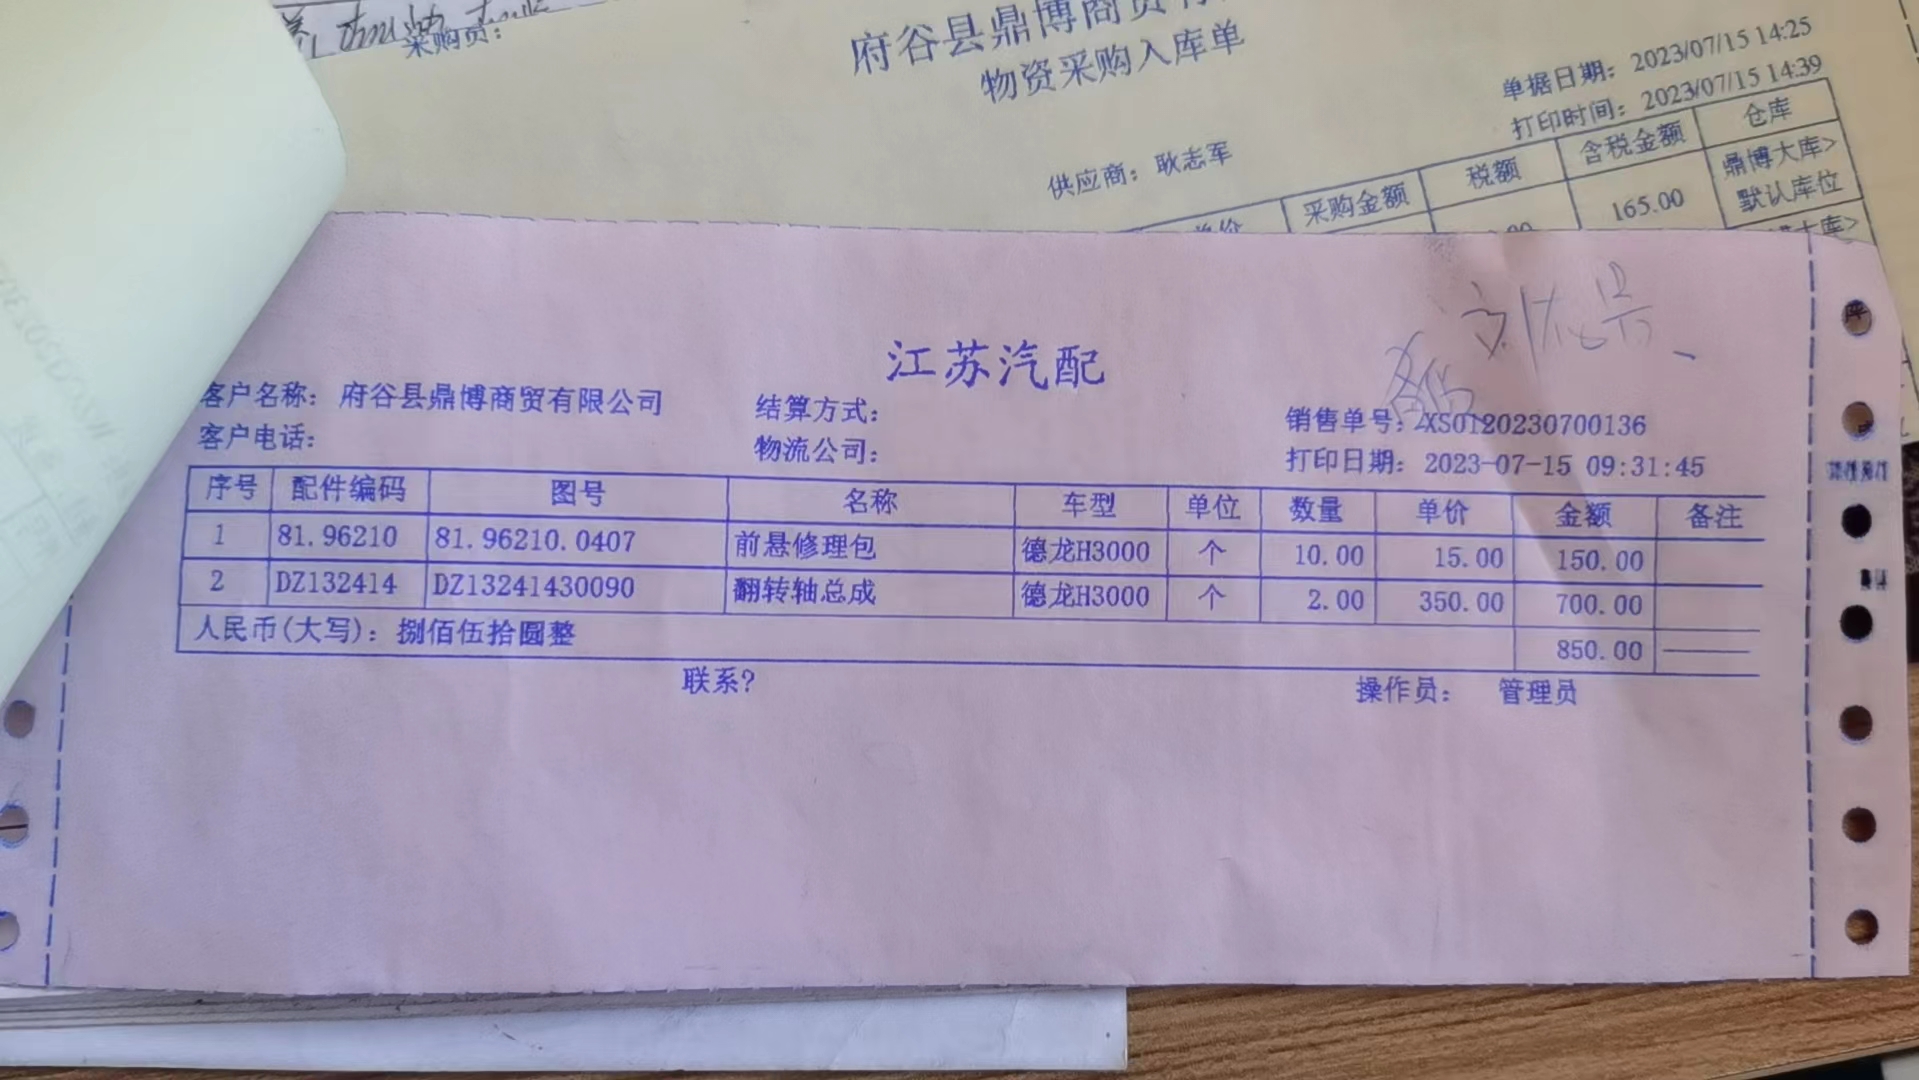 采购员：
府谷县鼎博商贸有
物资采购入库单
单据日期：2023/07/15 14:25
打印时间：2023/07/15 14:39
供应商：耿志军
单价 采购金额 税额 含税金额 仓库
165.00 鼎博大库>
默认库位
大库>
江苏汽配
客户名称：府谷县鼎博商贸有限公司 结算方式： 销售单号：XS0120230700136
客户电话： 物流公司： 打印日期：2023-07-15 09:31:45
序号 配件编码 图号 名称 车型 单位 数量 单价 金额 备注
1 81.96210 81.96210.0407 前悬修理包 德龙H3000 个 10.00 15.00 150.00
2 DZ132414 DZ13241430090 翻转轴总成 德龙H3000 个 2.00 350.00 700.00
人民币(大写)：捌佰伍拾圆整 850.00
联系? 操作员： 管理员